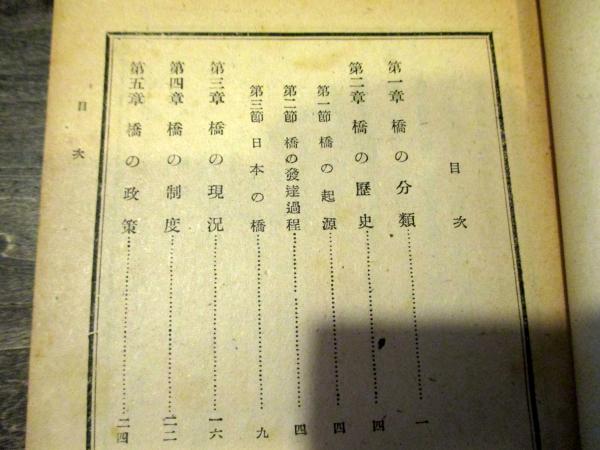 目次
第一章 橋の分類……一
第二章 橋の歷史……四
第一節 橋の起源……四
第二節 橋の發達過程……四
第三節 日本の橋……九
第三章 橋の現況……一六
第四章 橋の制度……二二
第五章 橋の政策……二四
目次